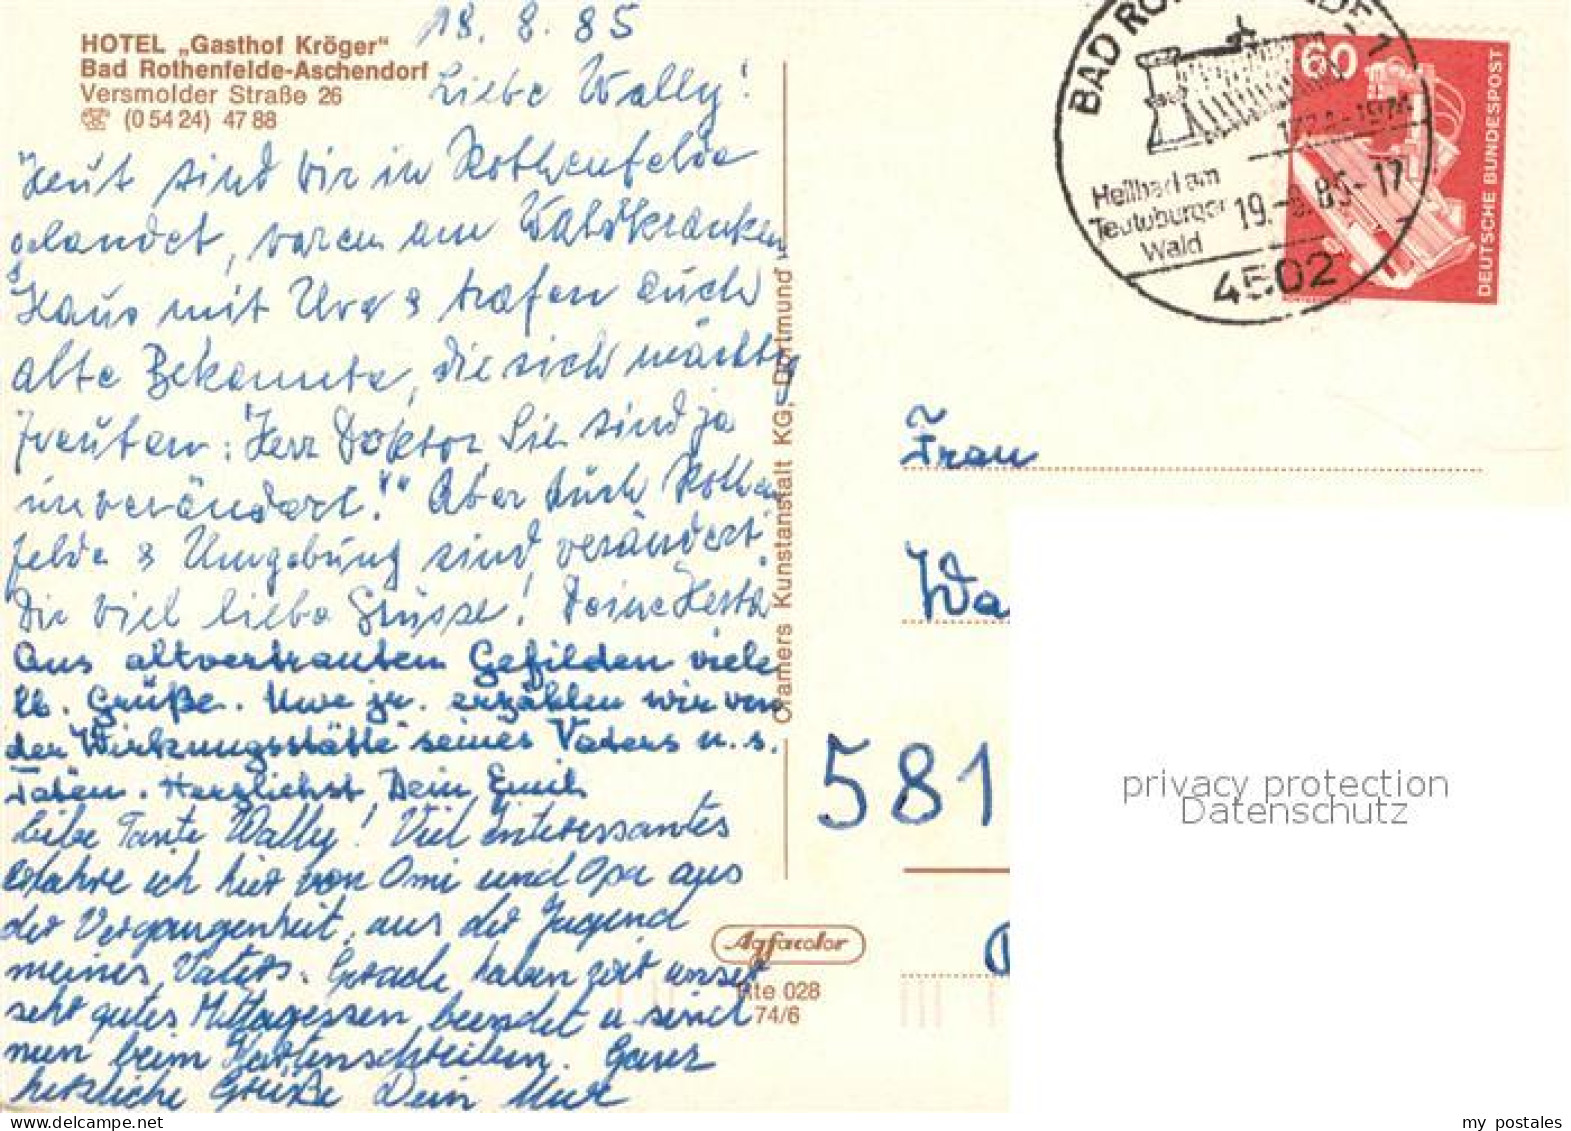 18. 8. 85
HOTEL „Gasthof Kröger“
Bad Rothenfelde-Aschendorf
Versmolder Straße 26
☎ (0 54 24) 47 88
Liebe Wally!
Heut sind wir in Rothenfelde
gelandet, waren am Waldkranken
Haus mit Uwe & trafen auch
alte Bekannte, die sich mächtig
freuten: "Herr Doktor Sie sind ja
unverändert!" Aber auch Rothen
felde & Umgebung sind verändert.
Die viel liebe Grüsse! Deine Herta
Aus altvertrauten Gefilden viele
lb. Grüße. Uwe jr. erzählen wir von
der Wirkungsstätte seines Vaters u. s.
Taten. Herzlichst Dein Emil
Liebe Tante Wally! Viel interessantes
erfahre ich hier von Omi und Opa aus
der Vergangenheit, aus der Jugend
meines Vaters. Gerade haben wir unser
sehr gutes Mittagessen beendet u. sind
nun beim Kartenschreiben. Ganz
herzliche Grüße Dein Uwe
Cramers Kunstanstalt KG, Dortmund
Agfacolor
Rte 028
74/6
BAD RO
1724-1974
Heilbad am
Teutoburger
Wald
19.-8.85-17
4502
60
DEUTSCHE BUNDESPOST
Frau
Wa
581
privacy protection
Datenschutz
my postales